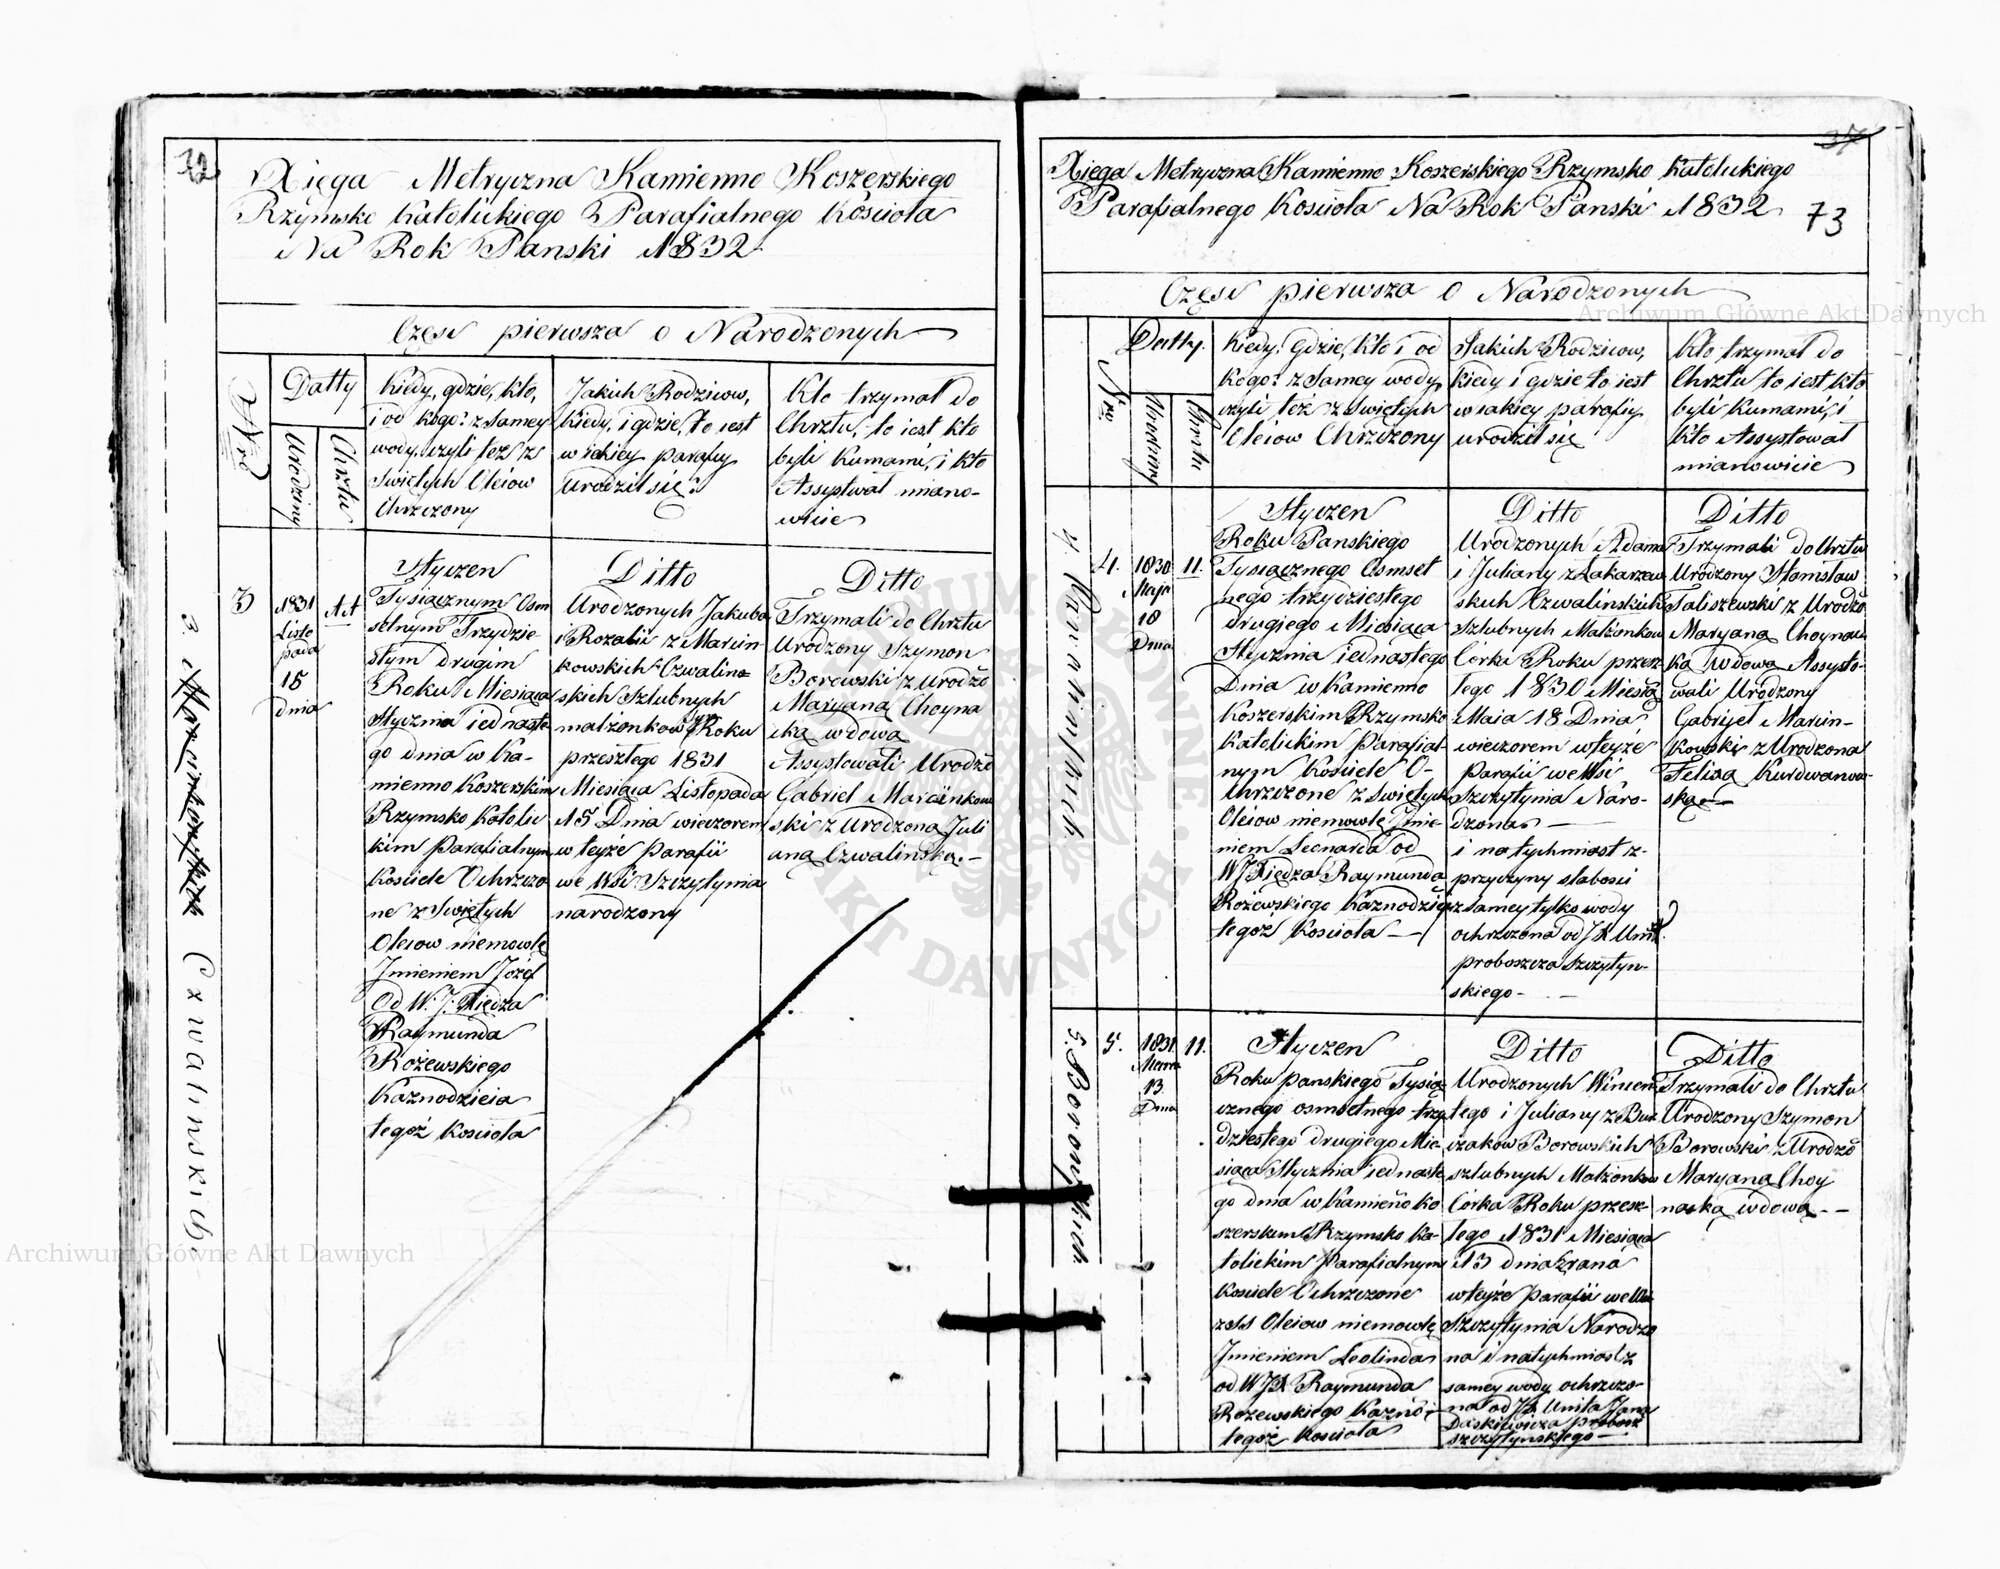 72
Xięga Metryczna Kamienno Koszerskiego
Rzymsko Katolickiego Parafialnego Kościoła
Na Rok Panski 1832
Częsc pierwsza o Narodzonych
Nro
Datty
Urodziny
Chrztu
Kiedy, gdzie, kto,
i od kogo? z Samey
wody, czyli też z
Swiętych Oleiow
Chrzczony
Jakich Rodzicow,
kiedy, i gdzie, to iest
w iakiey parafiy
urodził się?
Kto trzymał do
Chrztu, to iest kto
byli Kumami, i kto
Assystwał miano-
wicie
3 Marcinkowskich Czwalinskich.
3
1831
Listo
pada
15
dnia
11
Styczen
Tysiącznym Osm
setnym Trzydzie-
stym drugim
Roku Miesiąca
Stycznia iednaste
go dnia w Ka-
mienno Koszerskim
Rzymsko Katolic
kim Parafialnym
Kosciele Ochrzczo
ne z Swiętych
Oleiow niemowle
Jmieniem Józef
Od W. J. Xiedza
Raymunda
Rożewskiego
Kaznodzieia
tegoż Kosciola
Ditto
Urodzonych Jakuba
i Rozalii z Marcin-
kowskich Czwalin-
skich Szlubnych
małżonkow syn Roku
przeszłego 1831
Miesiąca Listopada
15 Dnia wieczorem
w teyże Parafii
we Wsi Szczytynia
narodzony
Ditto
Trzymali do Chrztu
Urodzony Szymon
Borowski z Urodzo
Maryaną Choyna
cką wdową
Assystowali Urodzo
Gabriel Marcinkow
ski z Urodzoną Juli
aną Czwalinską.-
37
Xięga Metryczna Kamienno Koszerskiego Rzymsko Katolickiego
Parafialnego Kosciola Na Rok Panski 1832
73
Częsc pierwsza o Narodzonych
Nro
Datty.
Urodziny
Chrztu
Kiedy? Gdzie, kto i od
Kogo? z Samey wody
czyli też z Swiętych
Oleiow Chrzczony
Jakich Rodzicow,
kiedy i gdzie to iest
w iakiey parafiy
urodził się
Kto trzymał do
Chrztu to iest kto
byli Kumami, i
kto Assystował
mianowicie
4
4.
1830
Maja
18
Dnia
11.
Styczen
Roku Panskiego
Tysiącznego Osmset
nego trzydziestego
drugiego Miesiąca
Stycznia iednastego
Dnia w Kamienno
Koszerskim Rzymsko
Katolickim Parafial-
nym Kosciele O-
chrzczone z Swiętych
Oleiow niemowle Jmie-
niem Leonarda od
WJ Xiędza Raymunda
Rożewskiego Kaznodzieia
tegoż Kosciola —
Ditto
Urodzonych Adama
i Juliany z Zakarzew
skich Czwalinskich
Szlubnych Malżonkow
Corka Roku przesz-
łego 1830 Miesią
Maia 18 Dnia
wieczorem wteyże
Parafii we Wsi
Szczytynia Naro-
dzona —
i natychmiast z-
przyczyny słabosci
z samey tylko wody
ochrzczona od JX Unit
proboszcza Szczytyn-
skiego - -
Ditto
Trzymali do Chrztu
Urodzony Stanisław
Taliszewski z Urodzo
Maryaną Choynac-
ką Wdową Assysto-
wali Urodzony
Gabrijel Marcin-
kowski z Urodzona
Felixą Kurdwanow-
ską—
5. Borowskich
5.
1831
13
Dnia
11.
Styczen
Roku panskiego Tysią
cznego osmsetnego trzy
dziestego drugiego Mie-
siąca Stycznia iednaste
go dnia w Kamieno ko
szerskim Rzymsko Ka-
tolickim Parafialnym
Kosciele Ochrzczone
Oleiow niemowlę
Jmieniem Leolinda
od WJX Raymunda
Rożewskiego Kaznó
tegoż Kosciola
Ditto
Urodzonych Wincen
tego i Juliany z Bur
czakow Borowskich
szlubnych Malżonkow
Corka Roku przesz-
łego 1831 Miesiąca
13 dnia z rana
wteyże Parafii we Wsi
Szczytynia Narodzo
na i natychmiast z
samey wody ochrzczo-
na od JX Unita Jana
Daskiewicza probosz
szczytynskiego —
Ditto
Trzymali do Chrztu
Urodzony Szymon
Borowski z Urodzo
Maryaną Choy
nacką wdową - -
Archiwum Główne Akt Dawnych
Archiwum Główne Akt Dawnych